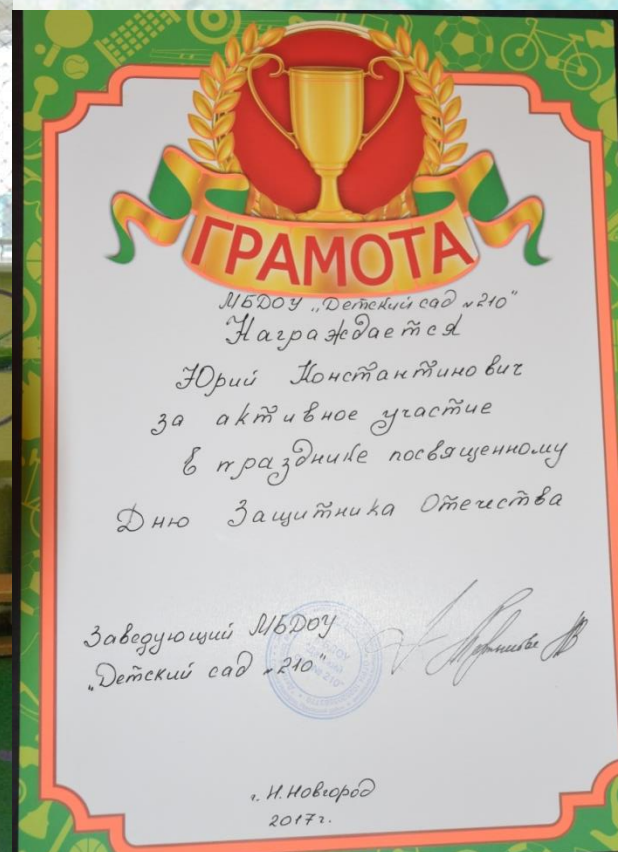 ГРАМОТА
МБДОУ „Детский сад №210"
Награждается
Юрий Константинович
за активное участие
в празднике посвященному
Дню Защитника Отечества
Заведующий МБДОУ
„Детский сад №210"
г. Н. Новгород
2017г.